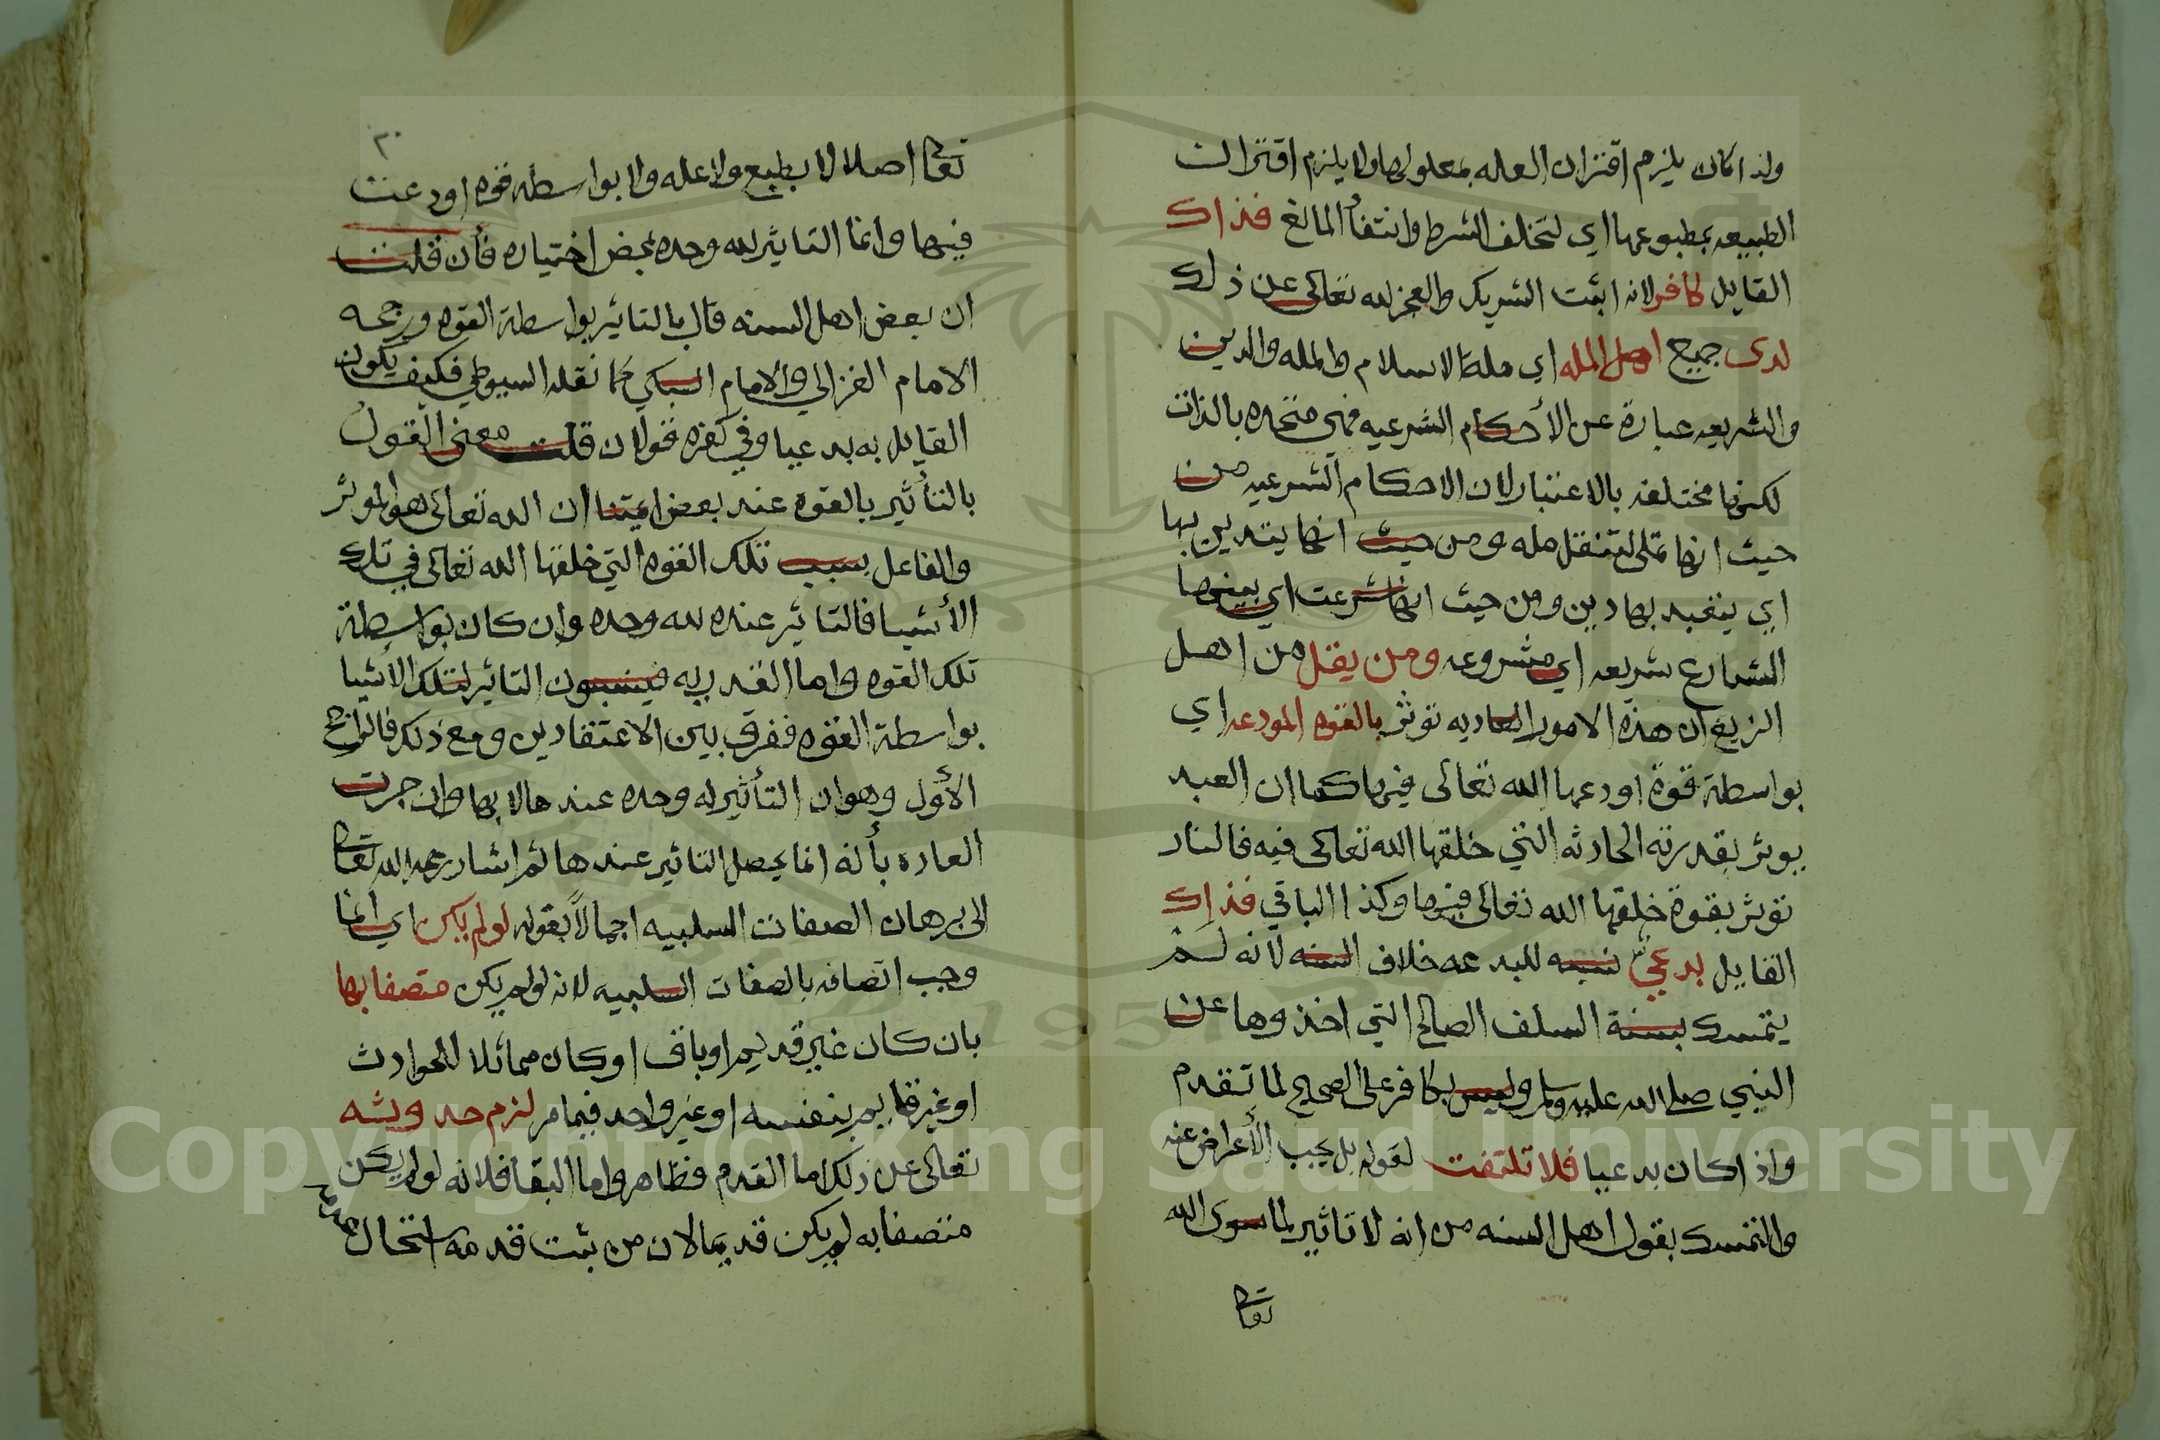 ولذا كان يلزم اقتران العله بمعلولها ولا يلزم اقتران
الطبيعه بمطبوعها اي لتخلف الشرط وانتفأ المانع فذاك
القايل كافر لانه اثبت الشريك والعجز لله تعالى عن ذلك
لدى جميع اهل المله اي ملة الاسلام والمله والدين
والشريعه عبارة عن الأحكام الشرعيه فهي متحده بالذات
لكنها مختلفه بالاعتبار لان الاحكام الشرعيه من
حيث انها تملى لتنقل مله ومن حيث انها يتدين بها
اي يتعبد بها دين ومن حيث انها شرعت اي بينها
الشارع شريعه اي مشروعه ومن يقل من اهل
الزيغ ان هذه الامور العاديه توثر بالقوه المودعه اي
بواسطة قوة اودعها الله تعالى فيها كما ان العبد
يوثر بقدرته الحادثه التي خلقها الله تعالى فيه فالنار
توثر بقوة خلقها الله تعالى فيها وكذا الباقي فذاك
القايل بدعيٌّ نسبه للبدعه خلاف السنه لانه لم
يتمسك بسنة السلف الصالح التي اخذوها عن
النبي صلى الله عليه وسلم وليس بكافر على الصحيح لما تقدم
واذا كان بدعيا فلا تلتفت لقوله بل يجب الأعراض عنه
والتمسك بقول اهل السنه من انه لا تاثير لما سوى الله
تعالى
٢٠
تعالى اصلا لا بطبع ولا عله ولا بواسطه قوه اودعت
فيها وانما التاثير لله وحده بمحض اختياره فأن قلت
ان بعض اهل السنه قال بالتاثير بواسطة القوه ورجحه
الامام الغزالي والامام السبكي كما نقله السيوطي فكيف يكون
القايل به بدعيا وفي كفره قولان قلت معنى القول
بالتأثير بالقوه عند بعض ايمتنا ان الله تعالى هو الموثر
والفاعل بسبب تلك القوه التي خلقها الله تعالى في تلك
الأشيا فالتاثير عنده لله وحده وان كان بواسطة
تلك القوه واما القدريه فينسبون التاثير لتلك الأشيا
بواسطة القوه ففرق بين الاعتقادين ومع ذلك فالراجح
الأول وهو ان التأثير له وحده عندها لا بها وان جرت
العاده بأنه انما يحصل التاثير عندها ثم اشار رحمه الله تعالى
الى برهان الصفات السلبيه اجمالاً بقوله لو لم يكن اي انما
وجب اتصافه بالصفات السلبيه لانه لو لم يكن متصفا بها
بان كان غير قديم او باق او كان مماثلا للحوادث
او غير قايم بنفسه او غير واحد فيما مر لزم حدوثه
تعالى عن ذلك اما القدم فظاهر واما البقا فلانه لو لم يكن
متصفا به لم يكن قديما لان من ثبت قدمه استحال عدمه